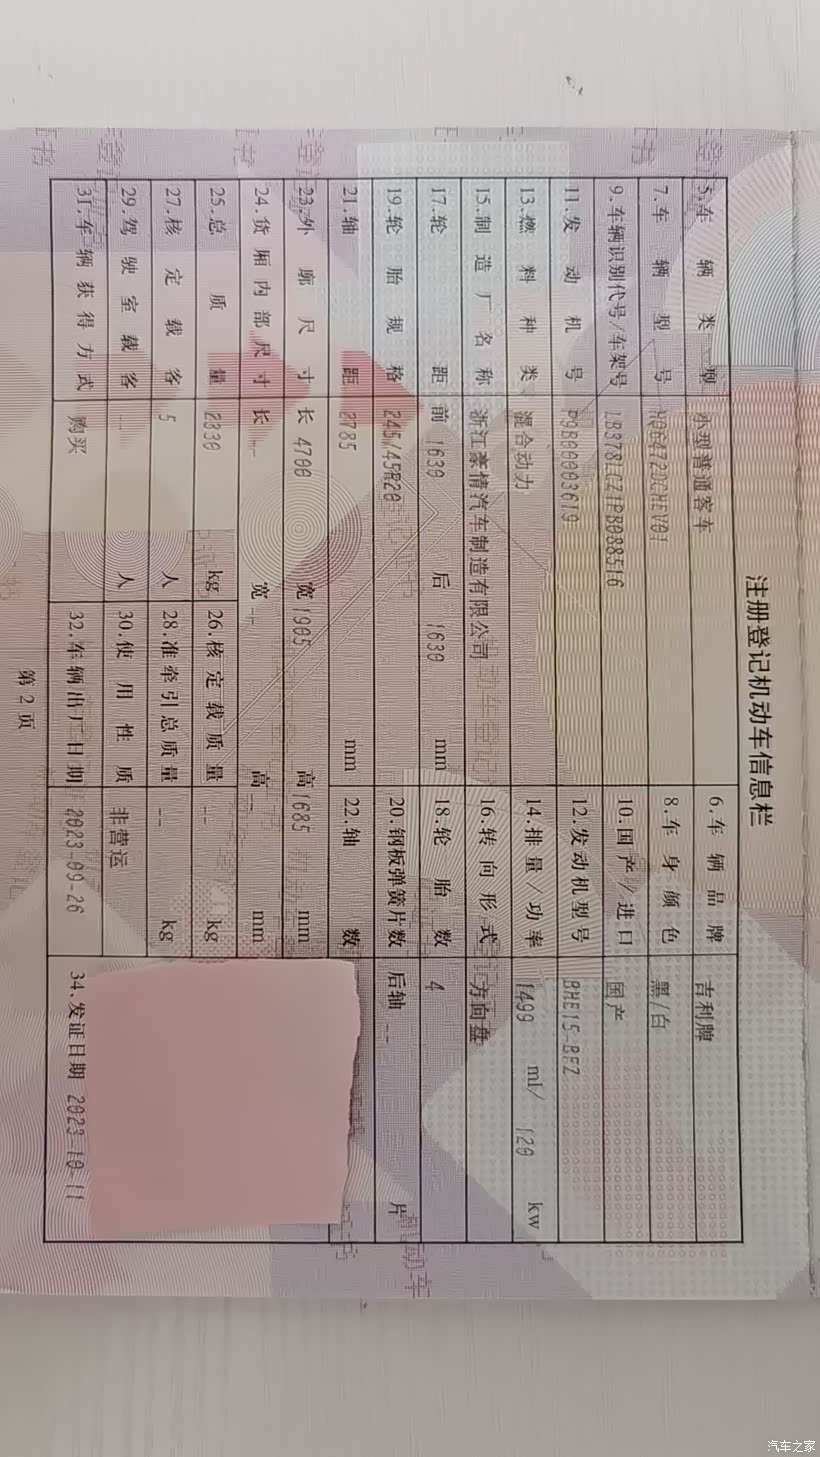 注册登记机动车信息栏
5.车辆类型 小型普通客车 6.车辆品牌 吉利牌
7.车辆型号 HQ6472DCHEV01 8.车身颜色 黑/白
9.车辆识别代号/车架号 LB378LCZ1PB088516 10.国产/进口 国产
11.发动机号 P9B00003619 12.发动机型号 BHE15-BFZ
13.燃料种类 混合动力 14.排量/功率 1499 ml/ 120 kw
15.制造厂名称 浙江豪情汽车制造有限公司 16.转向形式 方向盘
17.轮距 前 1630 后 1630 mm 18.轮胎数 4
19.轮胎规格 245/45R20 20.钢板弹簧片数 后轴 -- 片
21.轴距 2785 mm 22.轴数
23.外廓尺寸 长 4700 宽 1905 高 1685 mm
24.货厢内部尺寸 长 -- 宽 -- 高 -- mm
25.总质量 2330 kg 26.核定载质量 -- kg
27.核定载客 5 人 28.准牵引总质量 -- kg
29.驾驶室载客 -- 人 30.使用性质 非营运
31.车辆获得方式 购买 32.车辆出厂日期 2023-09-26 34.发证日期 2023-10-11
第 2 页
汽车之家